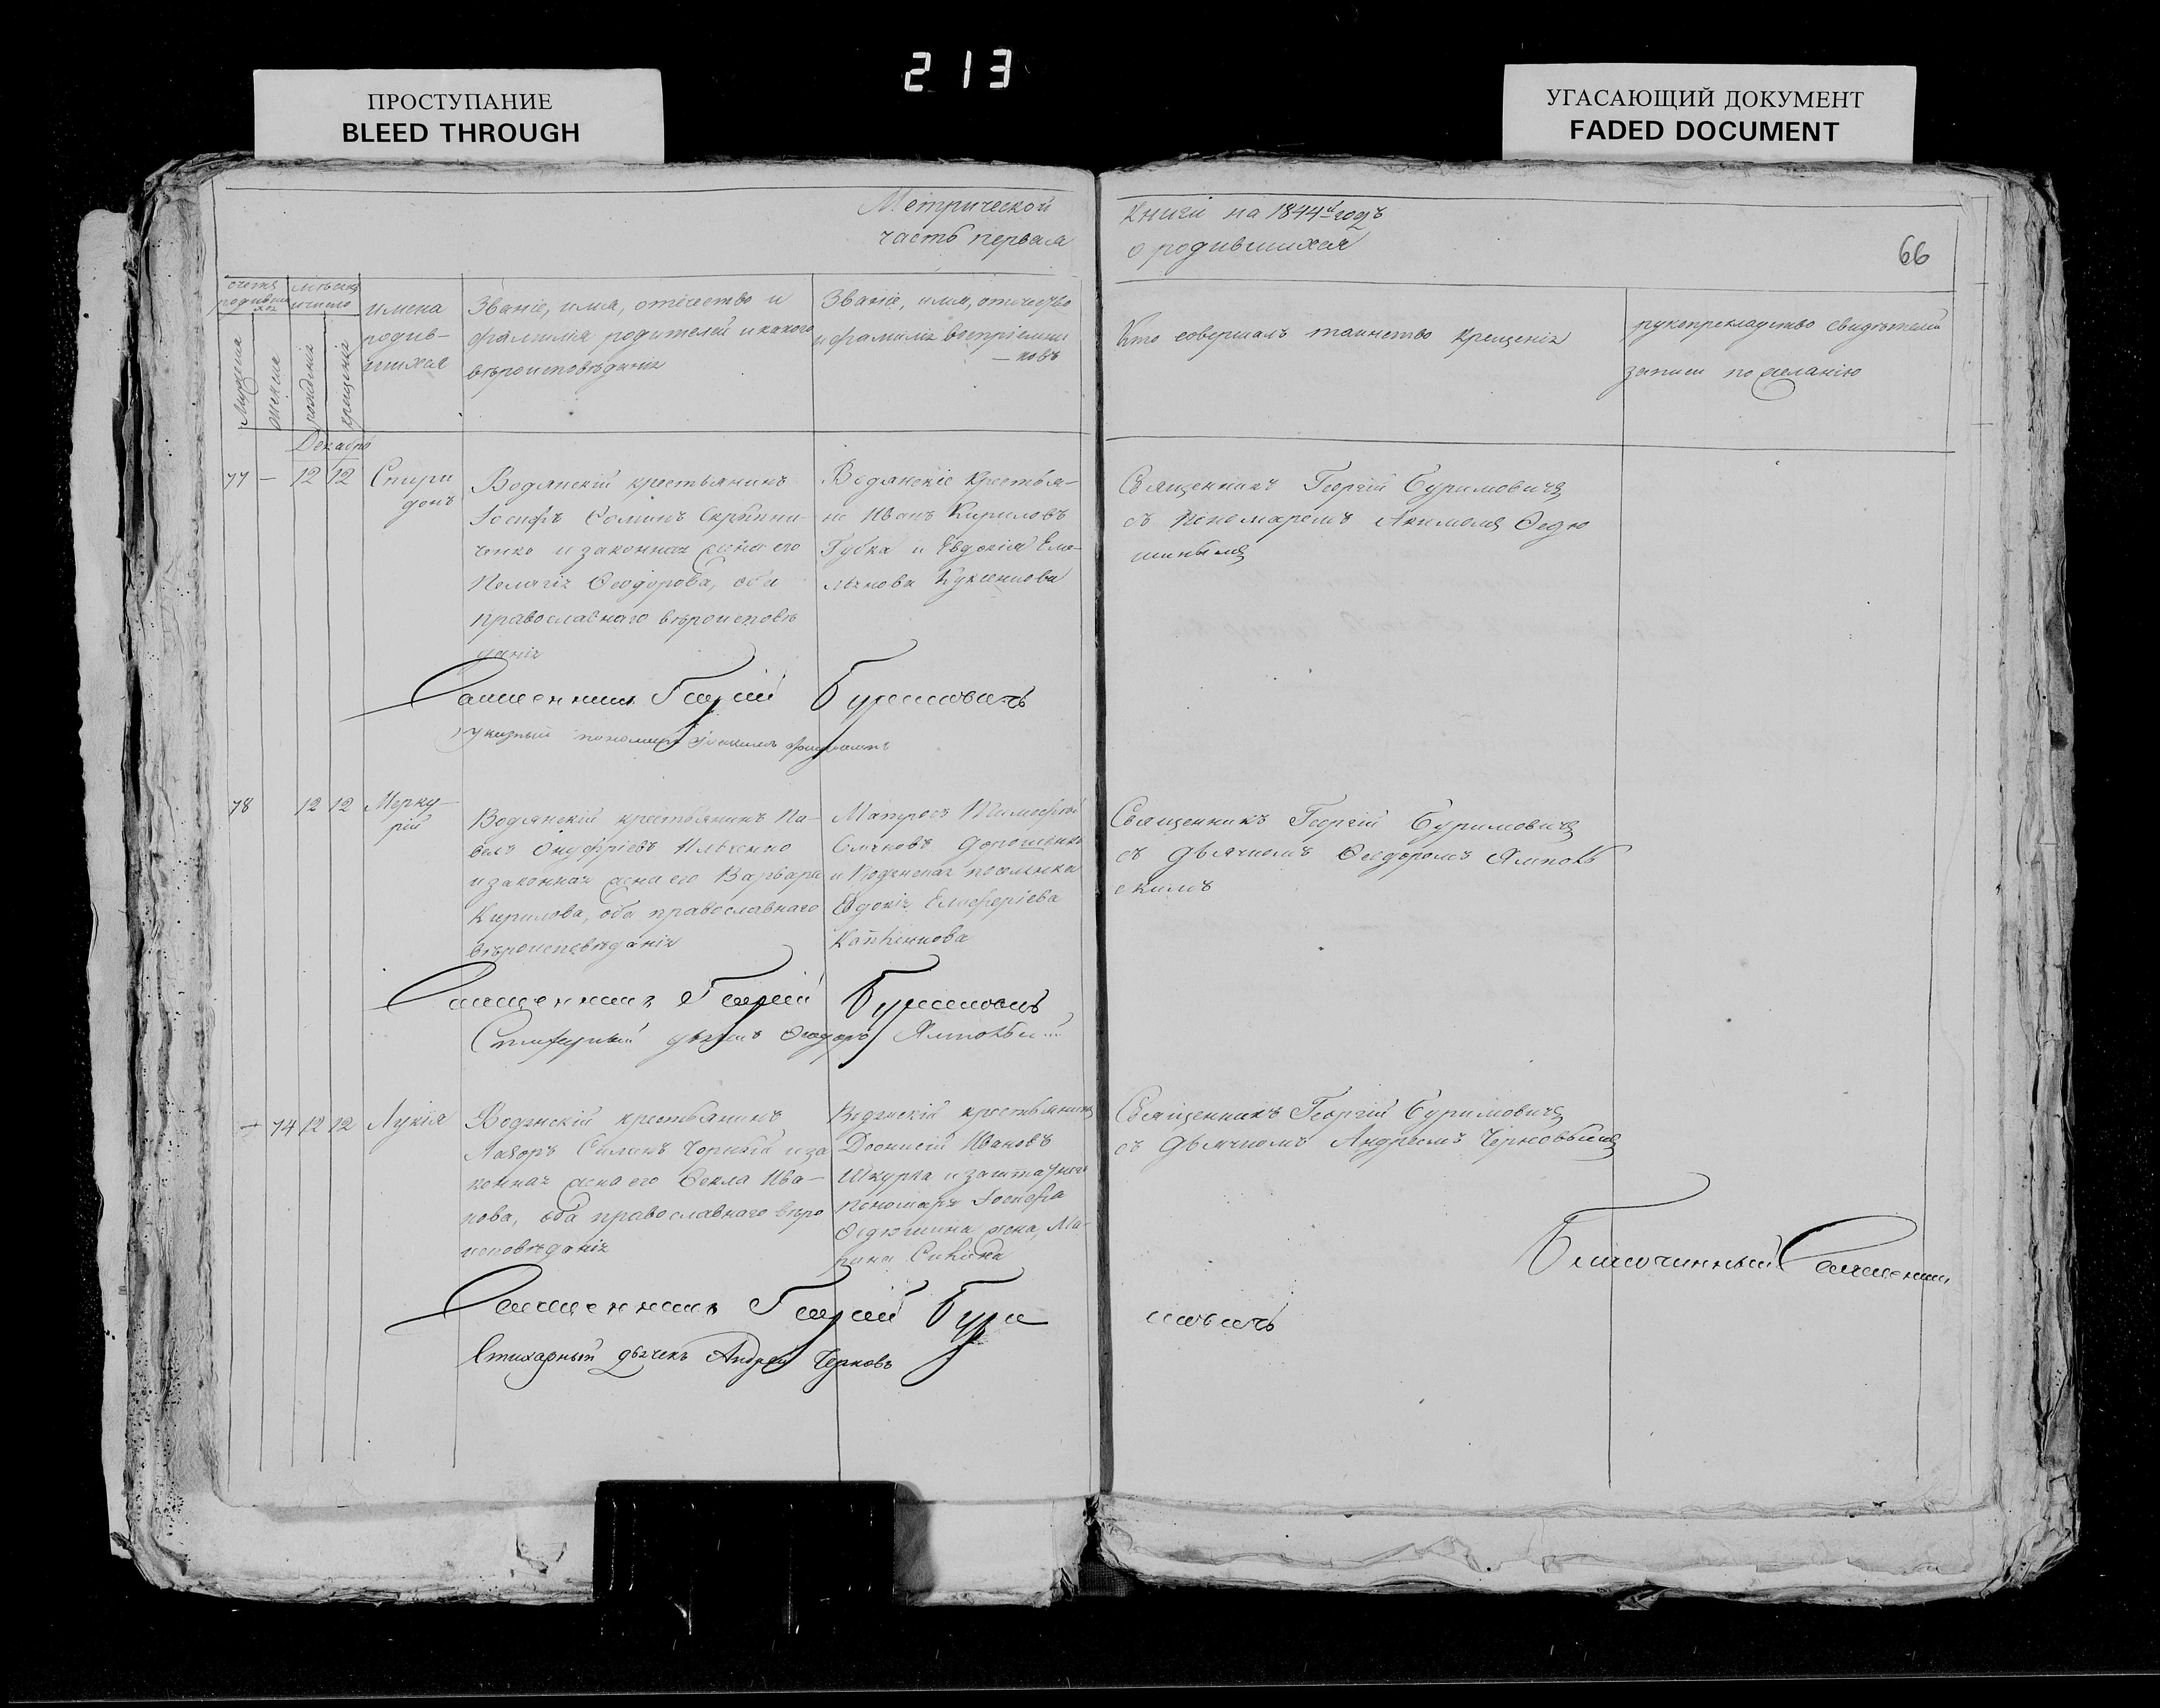 213
ПРОСТУПАНИЕ
BLEED THROUGH
УГАСАЮЩИЙ ДОКУМЕНТ
FADED DOCUMENT
Метрической
часть первая
книги на 1844й годъ
о родившихся
66
счетъ родившихся
мѣсяцъ и число
мужеска
женске
рожденія
крещенія
имена
родив-
шихся
Званіе, имя, отчество и
фамилія родителей и какого
вѣроисповѣданія
Званіе, имя, отчество
и фамилія воспріемни
-ковъ
Кто совершалъ таинство крещенія
рукоприкладство свидѣтелей
записи по желанію
Декабрь
77 - 12 12
Спири
донъ
Водянскій крестьянинъ
Іосифъ Фоминъ Скрыпни-
ченко и законная жена его
Пелагія Феодорова, оба
православнаго вѣроисповѣ
данія
Водянскіе крестья-
не Иванъ Кириловъ
Губка и Евдокія Еме-
льянова
Священникъ Георгій Буримовичъ
съ пономаремъ Акимомъ Федю
шинымъ
Священникъ Георгій Буримовичъ
указный пономарь
78 12 12
Мерку-
рій
Водянскій крестьянинъ Па-
велъ Онуфріевъ Ильченко
и законная жена его Варвара
Кирилова, оба православнаго
вѣроисповѣданія
Матросъ Тимофей
Дорошенко
и
Евдокія Елеферіева
Священникъ Георгій Буримовичъ
съ дьячкомъ Феодоромъ Ямполь
скимъ
Священникъ Георгій Буримовичъ
Стихарный дьячекъ Феодоръ Ямпольскій
- 74 12 12
Лукія
Водянскій крестьянинъ
Лавръ Силинъ Чорный и за
конная жена его Фекла Ива-
нова, оба православнаго вѣро
исповѣданія
Водянскій крестьянинъ
Діонисій Ивановъ
Шкурка и заштатнаго
пономаря Іосифа
Федюшина жена, Ма-
рина
Священникъ Георгій Буримовичъ
съ дьячкомъ Андреемъ Черновымъ
Священникъ Георгій Бури
мовичъ
Стихарный дьячекъ Андрей Черновъ
Благочинный Священник